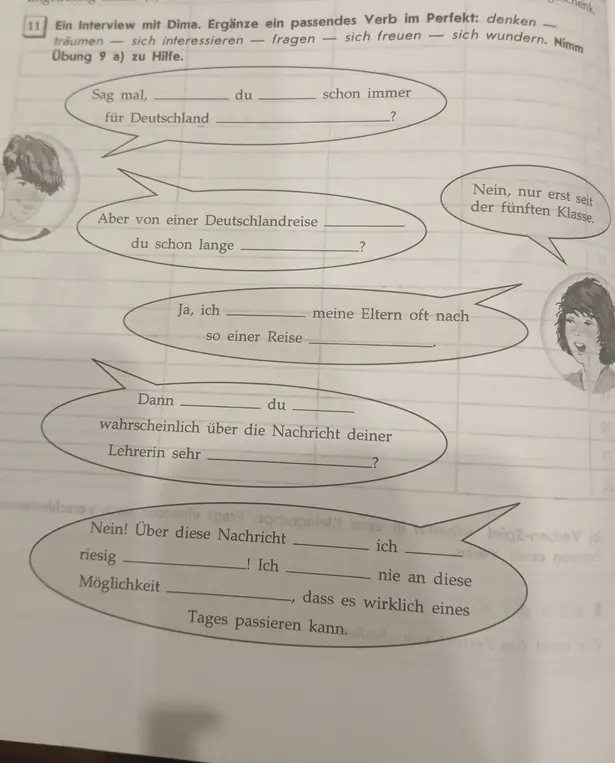 11 Ein Interview mit Dima. Ergänze ein passendes Verb im Perfekt: denken —
träumen — sich interessieren — fragen — sich freuen — sich wundern. Nimm
Übung 9 a) zu Hilfe.
Sag mal, ________ du ________ schon immer
für Deutschland ________?
Nein, nur erst seit
der fünften Klasse.
Aber von einer Deutschlandreise ________
du schon lange ________?
Ja, ich ________ meine Eltern oft nach
so einer Reise ________.
Dann ________ du ________
wahrscheinlich über die Nachricht deiner
Lehrerin sehr ________?
Nein! Über diese Nachricht ________ ich ________
riesig ________! Ich ________ nie an diese
Möglichkeit ________, dass es wirklich eines
Tages passieren kann.